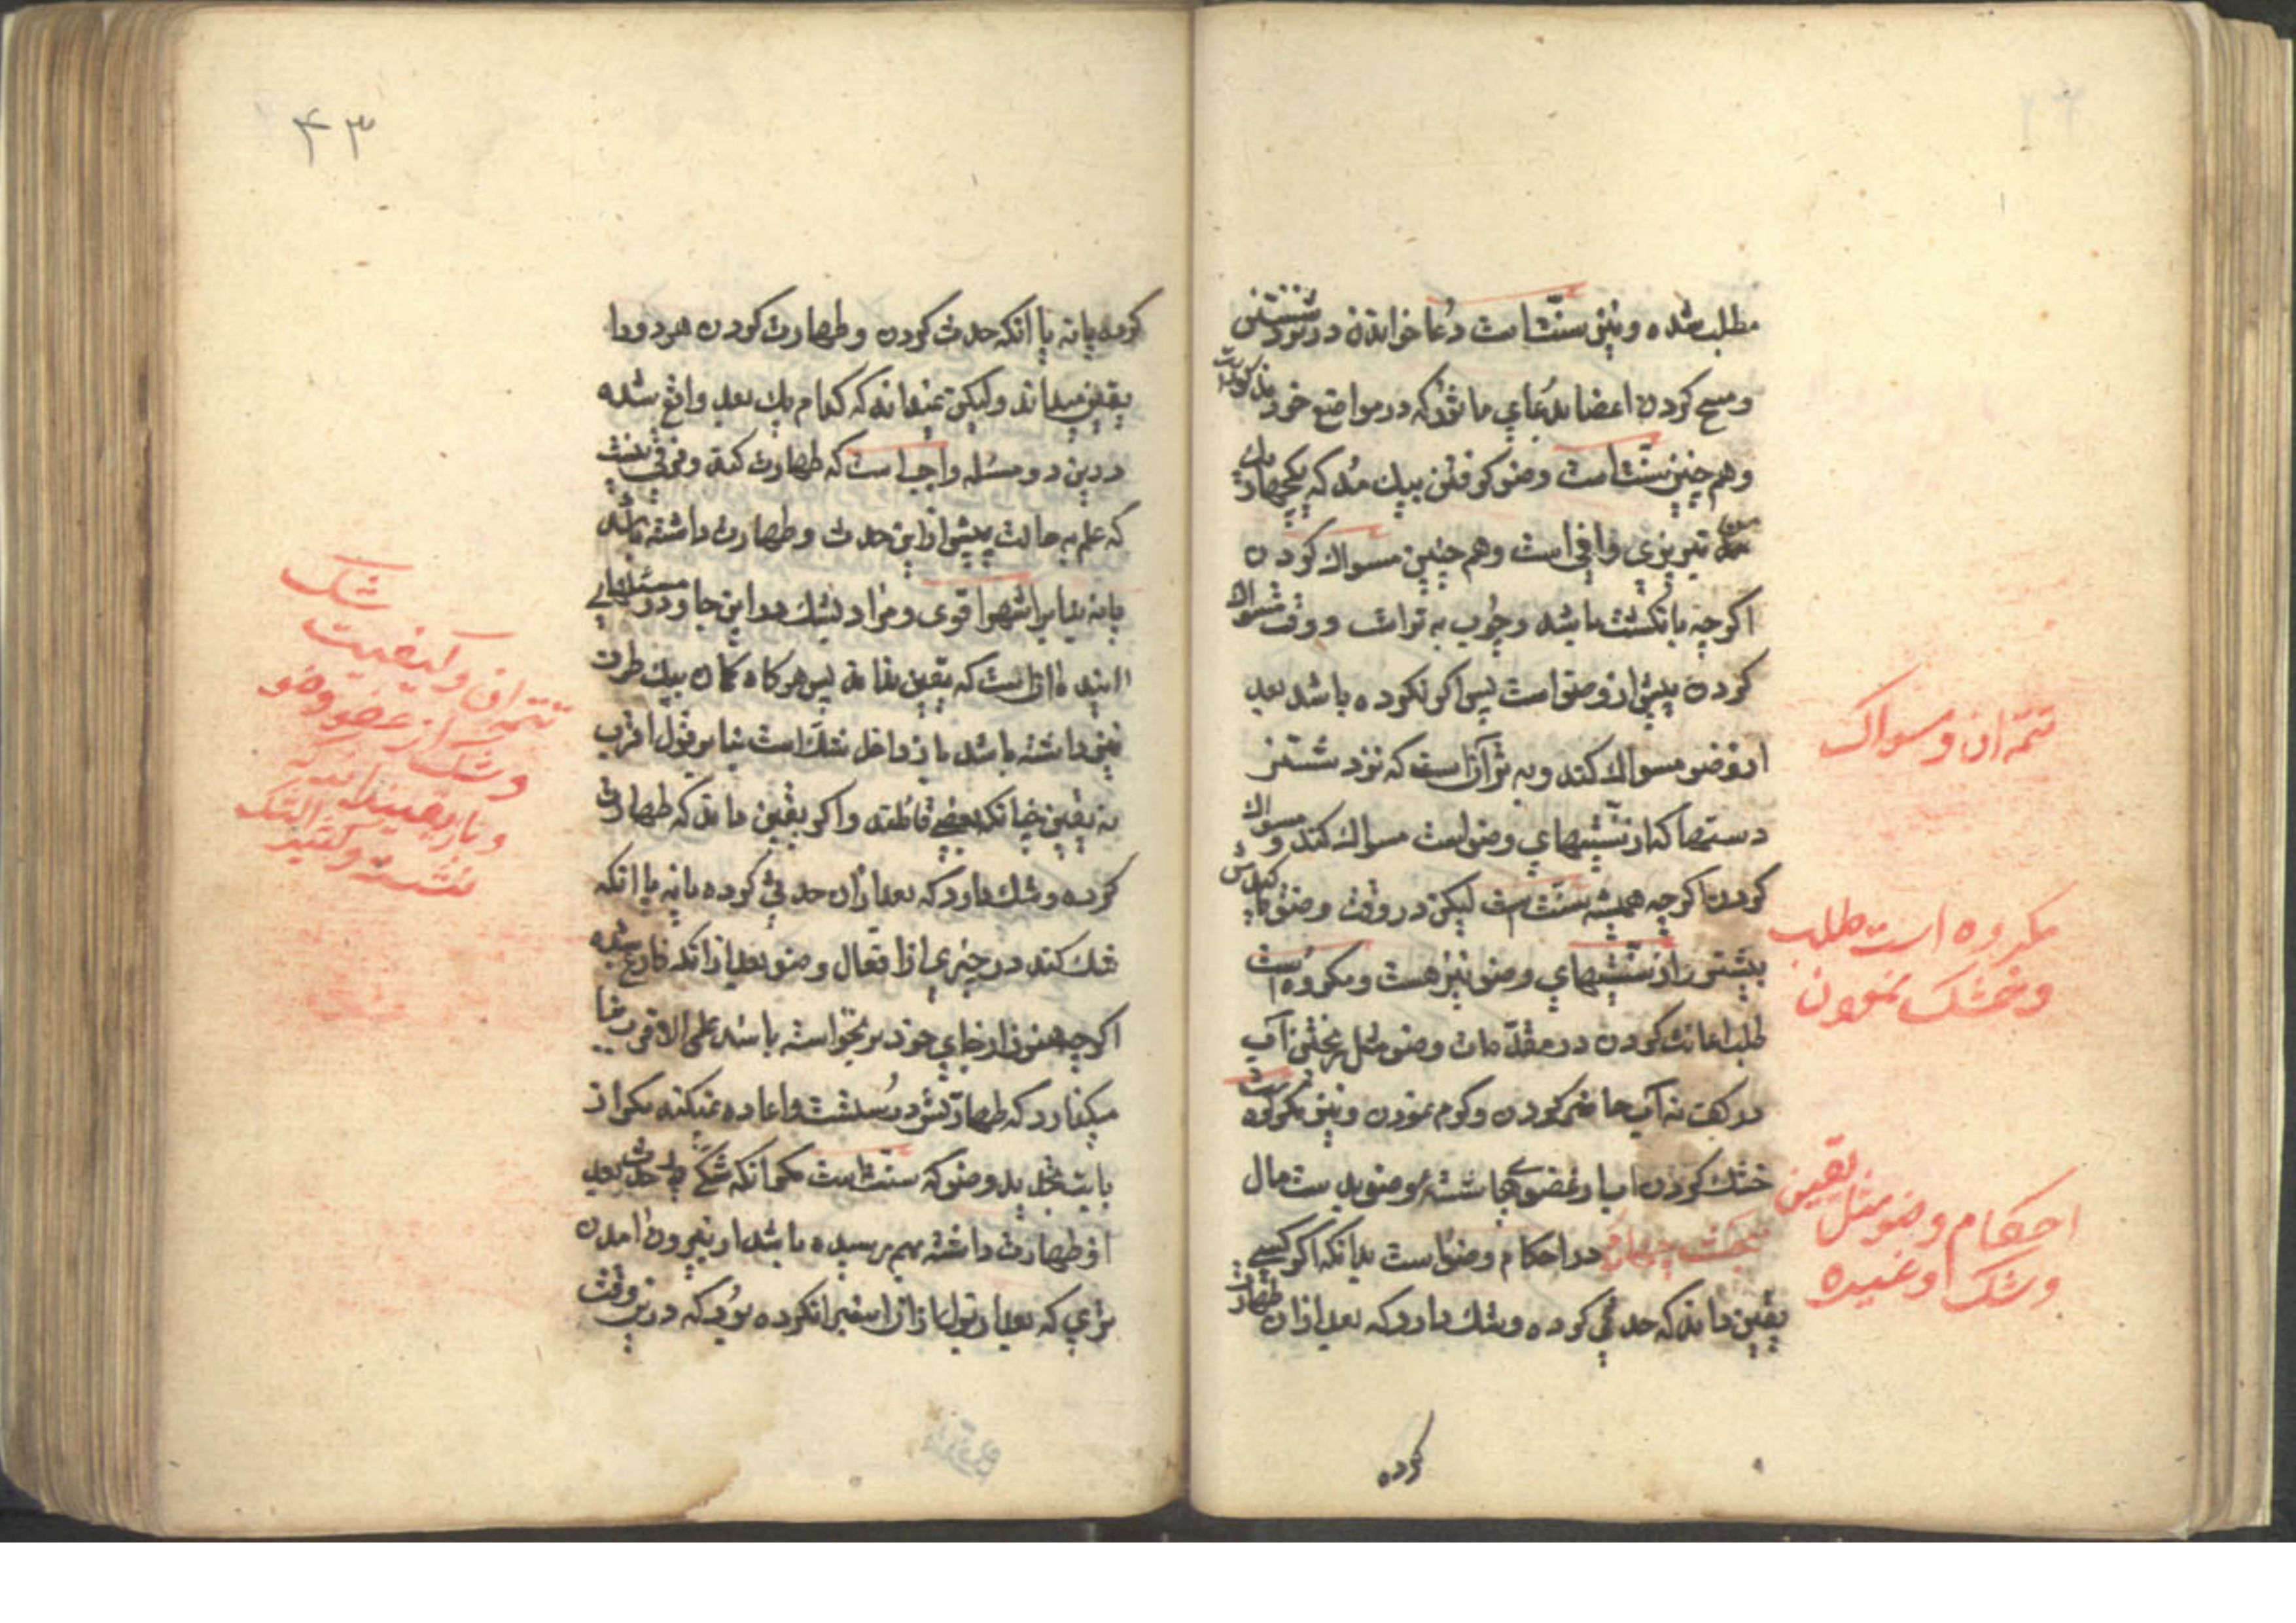 مطلب شده و نیز سنّت است دُعا خواندن در نزد شستن
و مسح کردن اعضا بدُعای ماثوُر که در مواضع خود مذکورست
و هم چنین سنّت است وضو کرفتن بیک مُد که یکچهار یك
من تبریزی وافی است و هم چنین مسواك کردن
اکرچه بانکشت باشد و چوُب به تر است و وقت مسواك
کردن پیش از وضو است پس اکر نکرده باشد بعد
از وضو مسواك کند و به تر آن است که نزد شستن
دستها که از سنّتیهای وضو است مسواك کند و مسواك
کردن اکرچه همیشه سنّت است لیکن در وقت وضو تاکیدش
بیشتر و از سنّتیهای وضو نیز هست و مکروه است
طلب اعانت کردن در مقدّمات وضو مثل ریختن آب
در کف نه آب حاضر کردن و کرم نمودن و نیز مکروه است
خشك کردن آب از عضوهای شسته وضو بدستمال
بحث چهارم در احکام وضو است بدانکه اکر کسی
یقین داند که حدثی کرده و شك دارد که بعد از ان طهارت
کرده
تتمّه ان و مسواک
مکروه است طلب
و خشک نمودن
احکام وضو مثل یقین
و شک و غیره
۴۳
کرده یا نه یا انکه حدث کردن و طهارت کردن هر دو را
یقین میداند و لیکن نمیداند که کدام یك بعد واقع شده
در دین دو مسئله واجب است که طهارت کند و فرقی نیست
که علم به حالت پیش از این حدث و طهارت داشته باشد
یا نه بنا بر اشهر اقوی و مراد بشك در این جا و در مسئلهای
اینده ان است که یقین نداند پس هرکاه کمان بیك طرف
نیز داشته باشد باز داخل شك است بنا بر قول اقرب
نه یقین چنانکه بعضی قائلند و اکر یقین داند که طهارت
کرده و شك دارد که بعد از ان حدثی کرده یا نه یا انکه
شك کند در چیزی از افعال وضو بعد از انکه فارغ شده
اکرچه هنوز از جای خود بر نخواسته باشد علی الاقرب بنا
میکذارد که طهارتش درُست است و اعاده نمیکند مکر از
باب تجدید وضو که سنّت است مکر انکه شکّی در حدث بعد
از طهارت داشته بهم رسیده باشد از بیرون امدن
تری که بعد از بول باز ان استبرا نکرده بوُد که در این وقت
شک
تتمه ان و کیفیت
و شک از عضو وضو